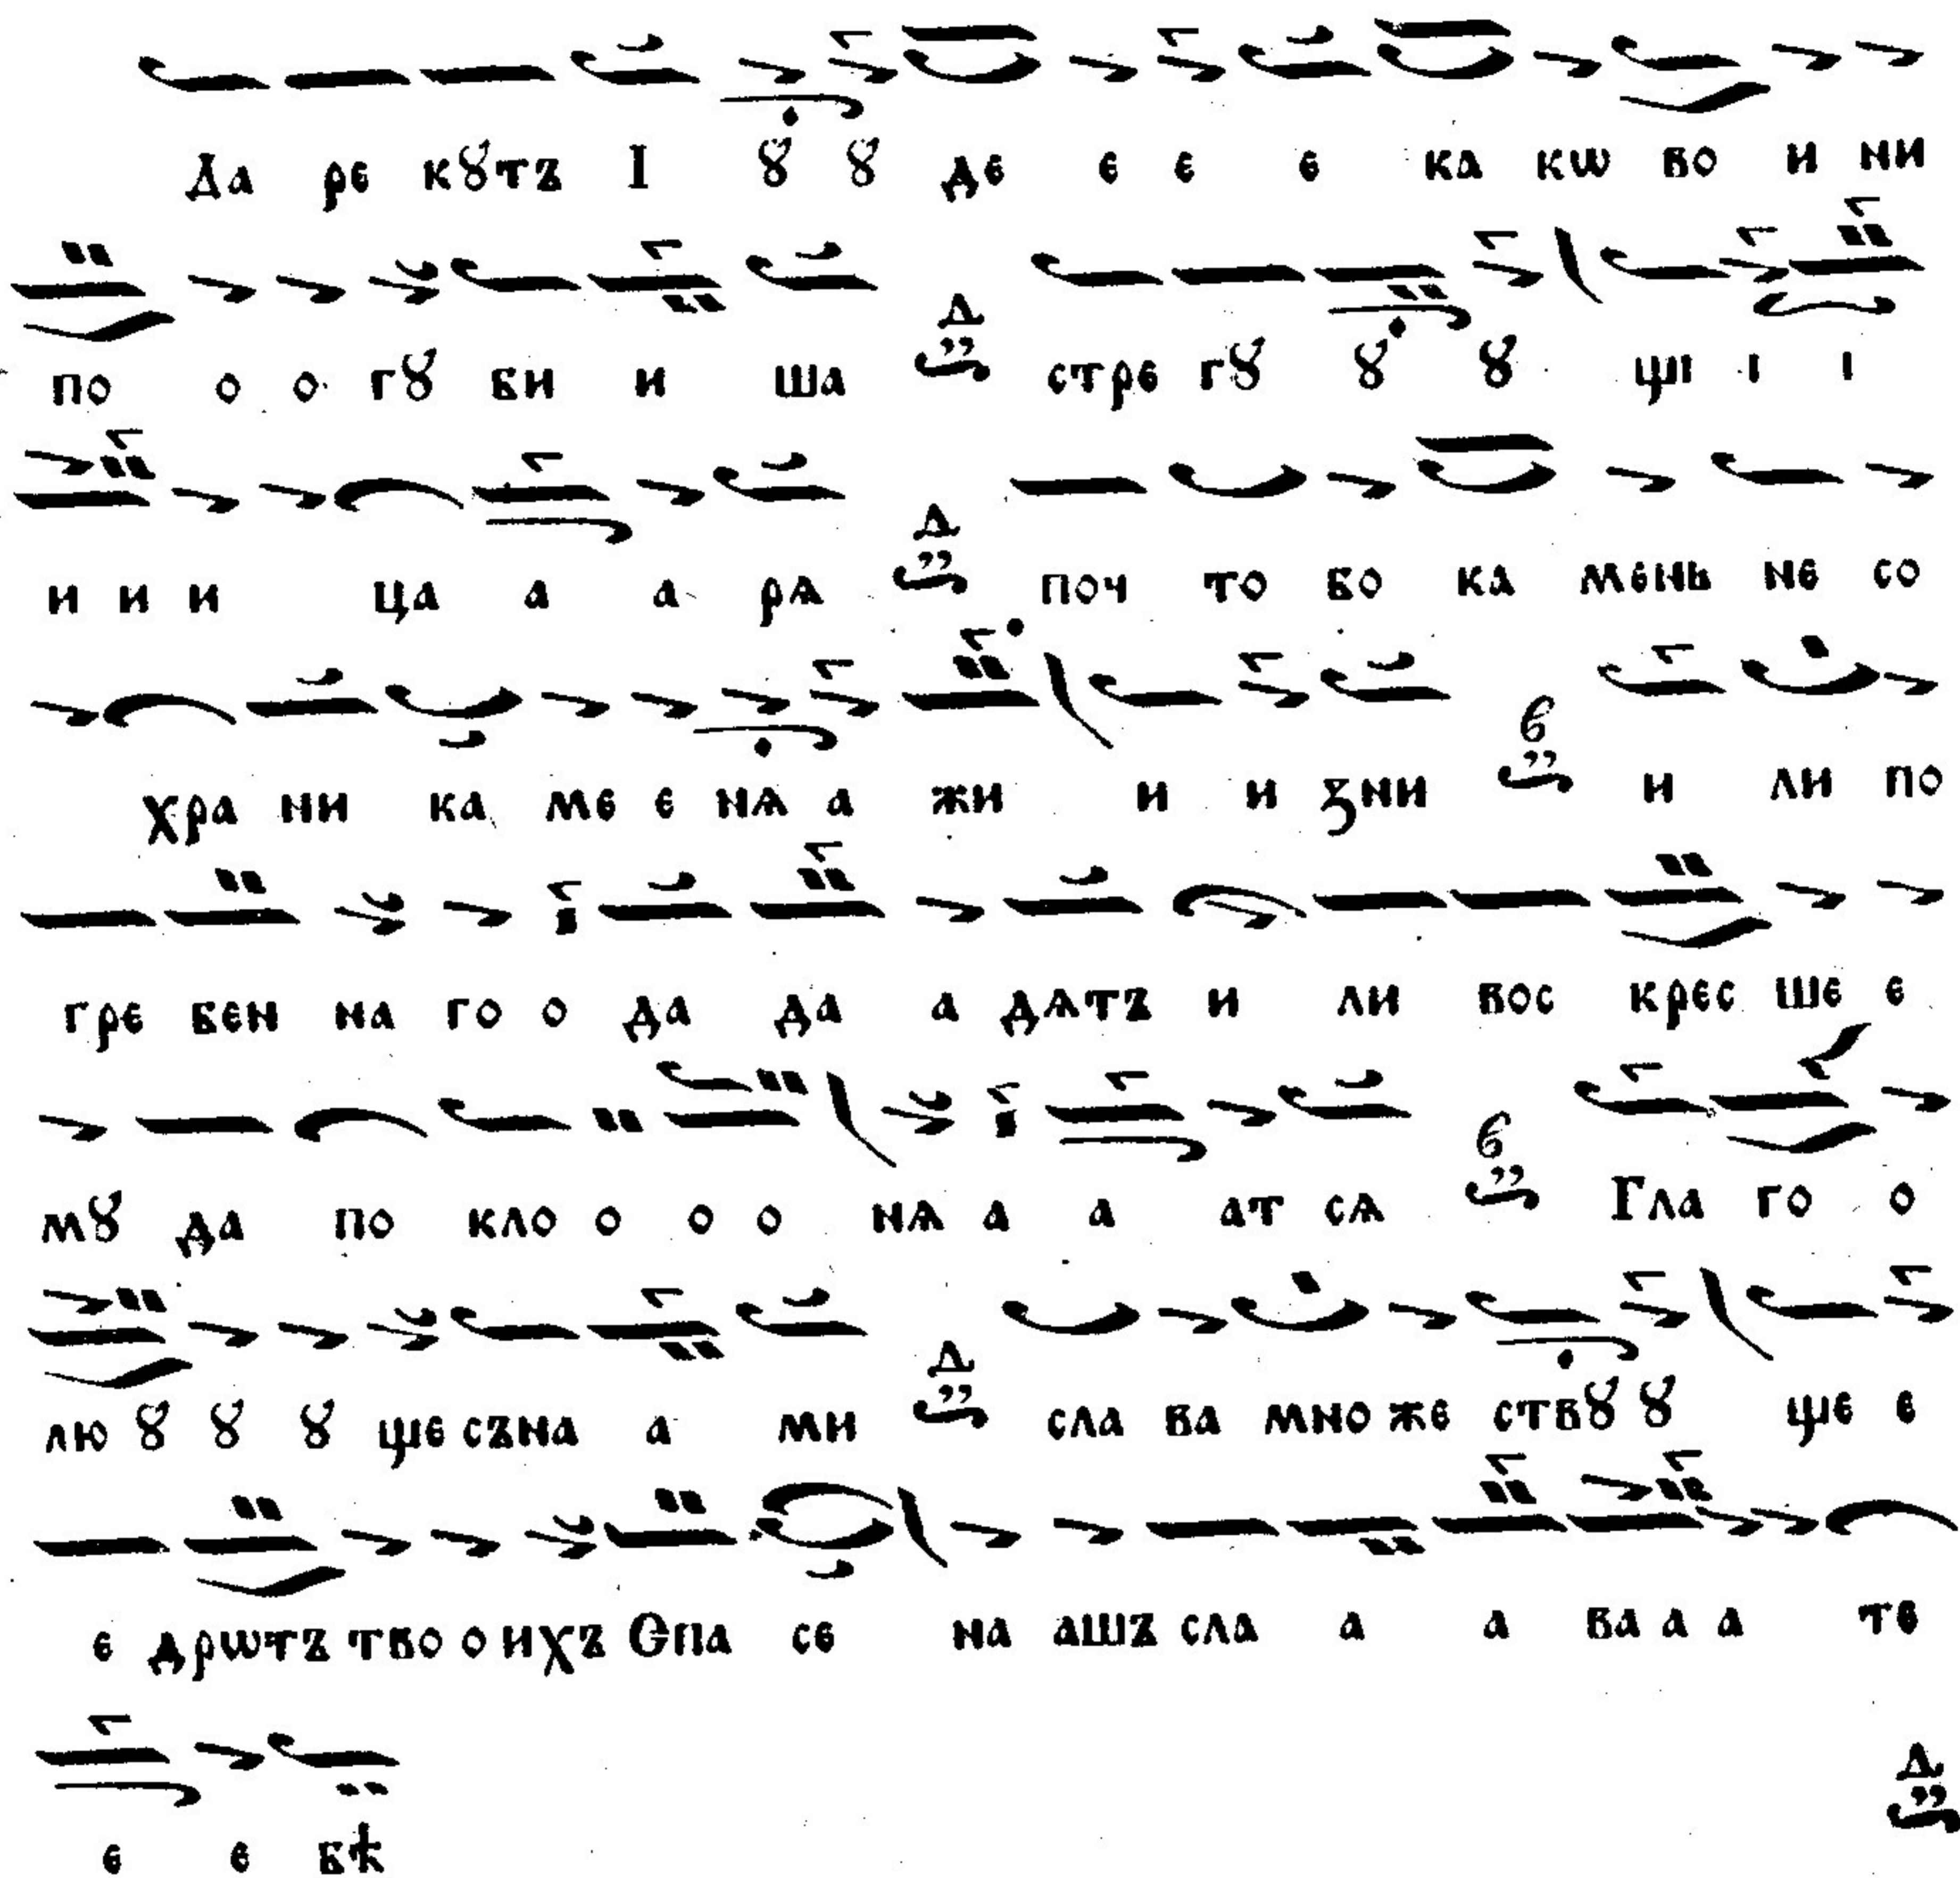 Да ре кꙋтъ І ꙋ ꙋ де е е е ка кѡ во и ни
по о о гꙋ би и ша Д стре гꙋ ꙋ ꙋ щі і і
и и и ца а а рѧ Д поч то бо ка мень не со
хра ни ка ме е нѧ а жи и и зни б и ли по
гре бен на го о да да а дѧтъ и ли вос крес ше е
мꙋ да по кло о о о нѧ а а ат сѧ б Гла го о
лю ꙋ ꙋ ꙋ ще съна а ми Д сла ва мно же ствꙋ ꙋ ще е
е дрѡтъ тво о ихъ Спа се на ашъ сла а а ва а а те
е е бѣ Д